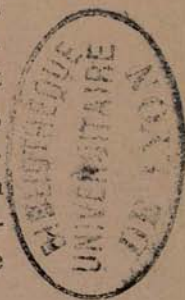 BIBLIOTHEQUE
UNIVERSITAIRE
DE LYON